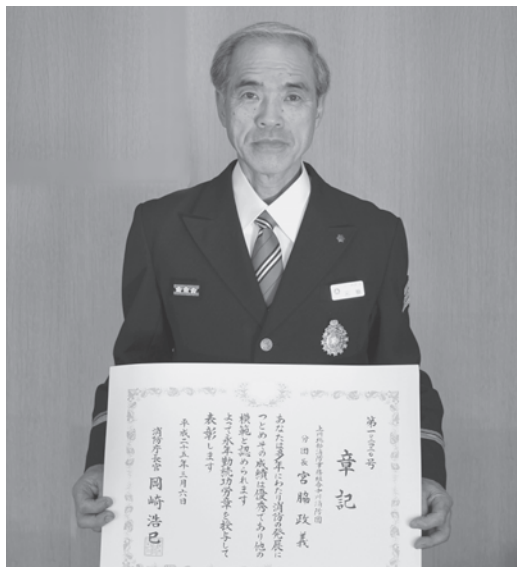 章記
分団長 宮脇政義
あなたは多年にわたり消防の発展に
つとめその成績は優秀であり他の
模範と認められます
よって永年勤続功労章を授与して
表彰します
平成二十五年三月六日
消防庁長官 岡崎浩巳